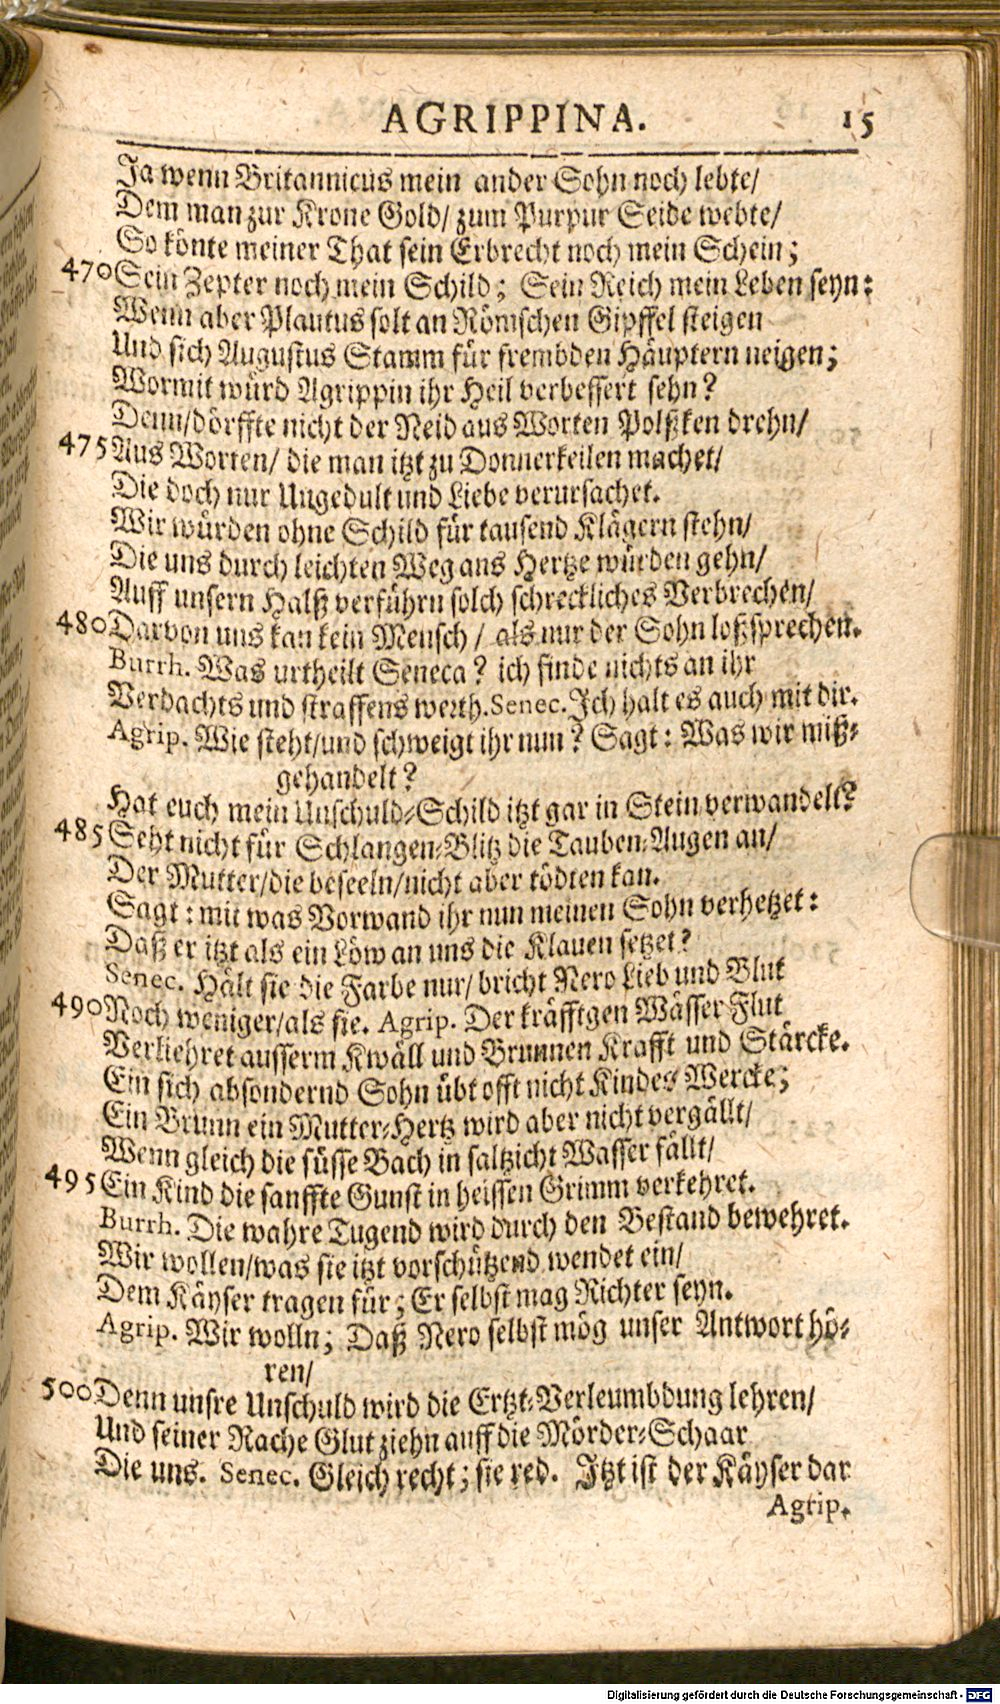 AGRIPPINA. 15
Ja wenn Britannicus mein ander Sohn noch lebte/
Dem man zur Krone Gold/ zum Purpur Seide webte/
So könte meiner That sein Erbrecht noch mein Schein;
470 Sein Zepter noch mein Schild; Sein Reich mein Leben seyn:
Wenn aber Plautus solt an Römschen Gipffel steigen
Und sich Augustus Stamm für frembden Häuptern neigen;
Wormit würd Agrippin ihr Heil verbessert sehn?
Denn/dörffte nicht der Neid aus Worten Polßken drehn/
475 Aus Worten/ die man itzt zu Donnerkeilen machet/
Die doch nur Ungedult und Liebe verursachet.
Wir würden ohne Schild für tausend Klägern stehn/
Die uns durch leichten Weg ans Hertze würden gehn/
Auff unsern Halß verführn solch schreckliches Verbrechen/
480 Darvon uns kan kein Mensch / als nur der Sohn loßsprechen.
Burrh. Was urtheilt Seneca? ich finde nichts an ihr
Verdachts und straffens werth. Senec. Ich halt es auch mit dir.
Agrip. Wie steht/und schweigt ihr nun? Sagt: Was wir miß-
gehandelt?
Hat euch mein Unschuld-Schild itzt gar in Stein verwandelt?
485 Seht nicht für Schlangen-Blitz die Tauben-Augen an/
Der Mutter/die beseeln/nicht aber tödten kan.
Sagt: mit was Vorwand ihr nun meinen Sohn verhetzet:
Daß er itzt als ein Löw an uns die Klauen setzet?
Senec. Hält sie die Farbe nur/ bricht Nero Lieb und Blut
490 Noch weniger/als sie. Agrip. Der kräfftgen Wässer Flut
Verliehret ausserm Kwäll und Brunnen Krafft und Stärcke.
Ein sich absondernd Sohn übt offt nicht Kindes Wercke;
Ein Brunn ein Mutter-Hertz wird aber nicht vergällt/
Wenn gleich die süsse Bach in saltzicht Wasser fällt/
495 Ein Kind die sanffte Gunst in heissen Grimm verkehret.
Burrh. Die wahre Tugend wird durch den Bestand bewehret.
Wir wollen/was sie itzt vorschützend wendet ein/
Dem Käyser tragen für; Er selbst mag Richter seyn.
Agrip. Wir wolln; Daß Nero selbst mög unser Antwort hö-
ren/
500 Denn unsre Unschuld wird die Ertzt-Verleumbdung lehren/
Und seiner Rache Glut ziehn auff die Mörder-Schaar
Die uns. Senec. Gleich recht; sie red. Itzt ist der Käyser dar
Agrip.
Digitalisierung gefördert durch die Deutsche Forschungsgemeinschaft - DFG